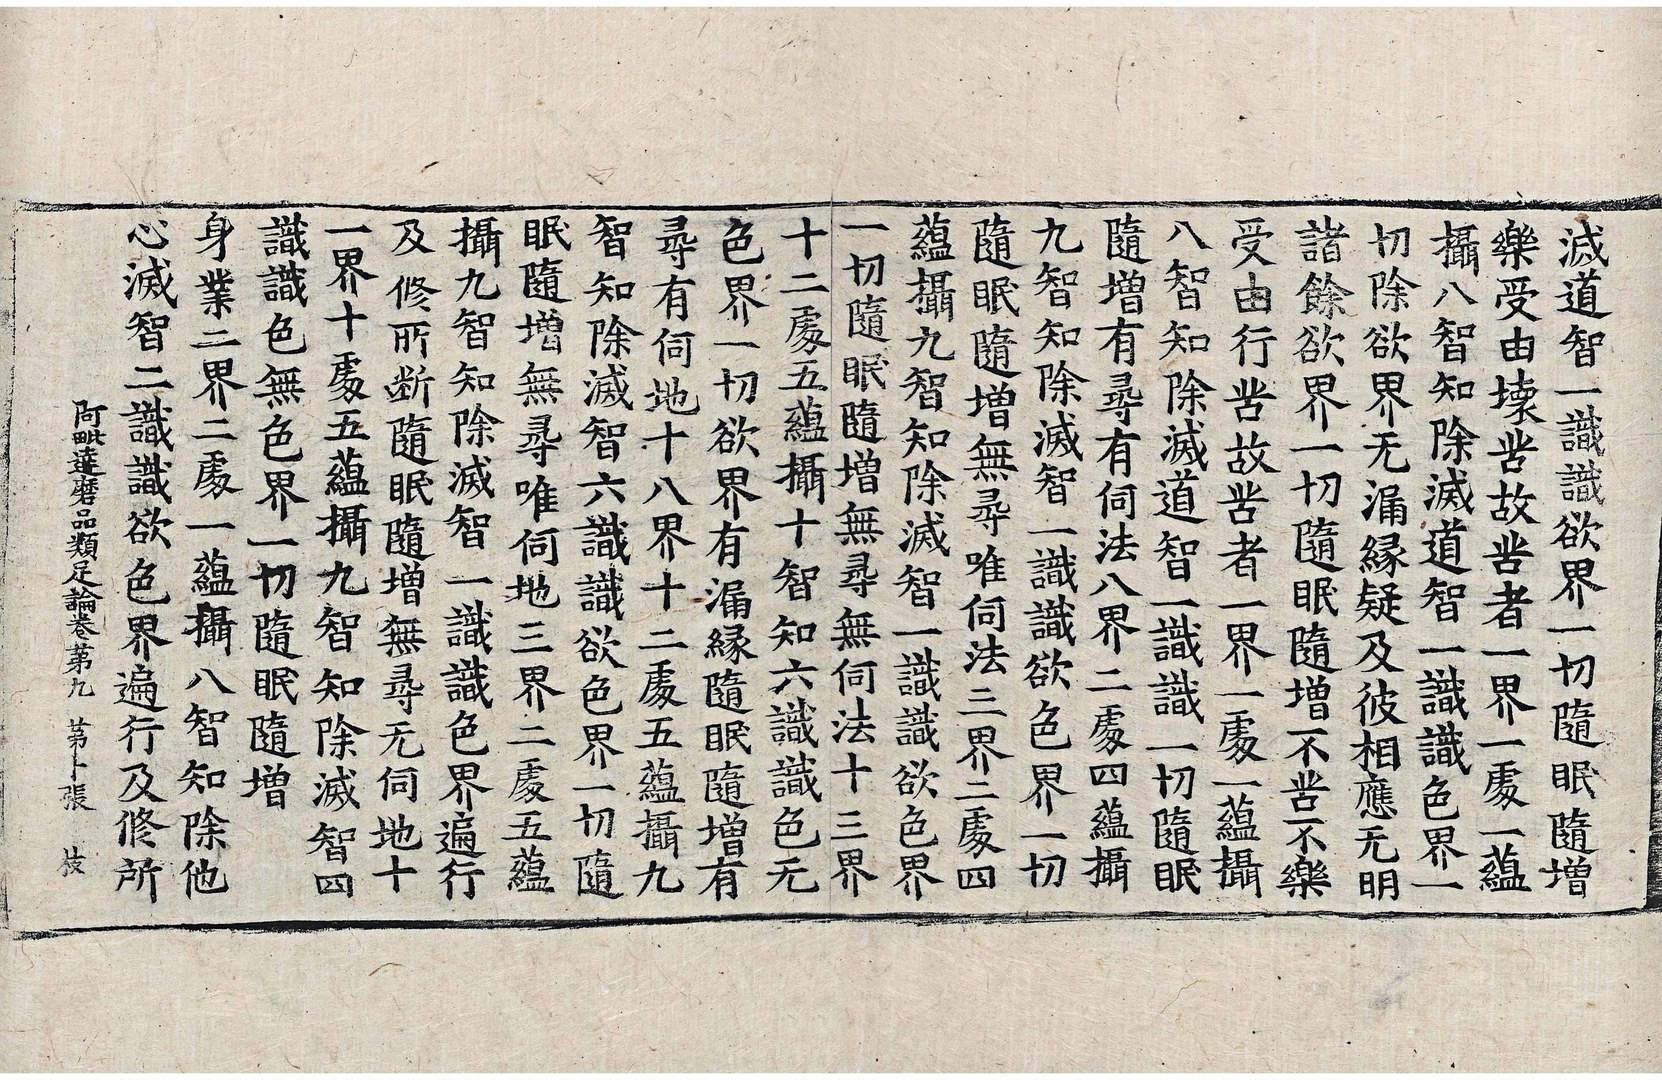 滅道智一識識欲界一切隨眠隨增
樂受由壞苦故苦者一界一處一蘊
攝八智知除滅道智一識識色界一
切除欲界无漏緣疑及彼相應无明
諸餘欲界一切隨眠隨增不苦不樂
受由行苦故苦者一界一處一蘊攝
八智知除滅道智一識識一切隨眠
隨增有尋有伺法八界二處四蘊攝
九智知除滅智一識識欲色界一切
隨眠隨增無尋唯伺法三界二處四
蘊攝九智知除滅智一識識欲色界
一切隨眠隨增無尋無伺法十三界
十二處五蘊攝十智知六識識色无
色界一切欲界有漏緣隨眠隨增有
尋有伺地十八界十二處五蘊攝九
智知除滅智六識識欲色界一切隨
眠隨增無尋唯伺地三界二處五蘊
攝九智知除滅智一識識色界遍行
及修所断隨眠隨增無尋无伺地十
一界十處五蘊攝九智知除滅智四
識識色無色界一切隨眠隨增
身業二界二處一蘊攝八智知除他
心滅智二識識欲色界遍行及修所
阿毗達磨品類足論卷第九 第十張 枝